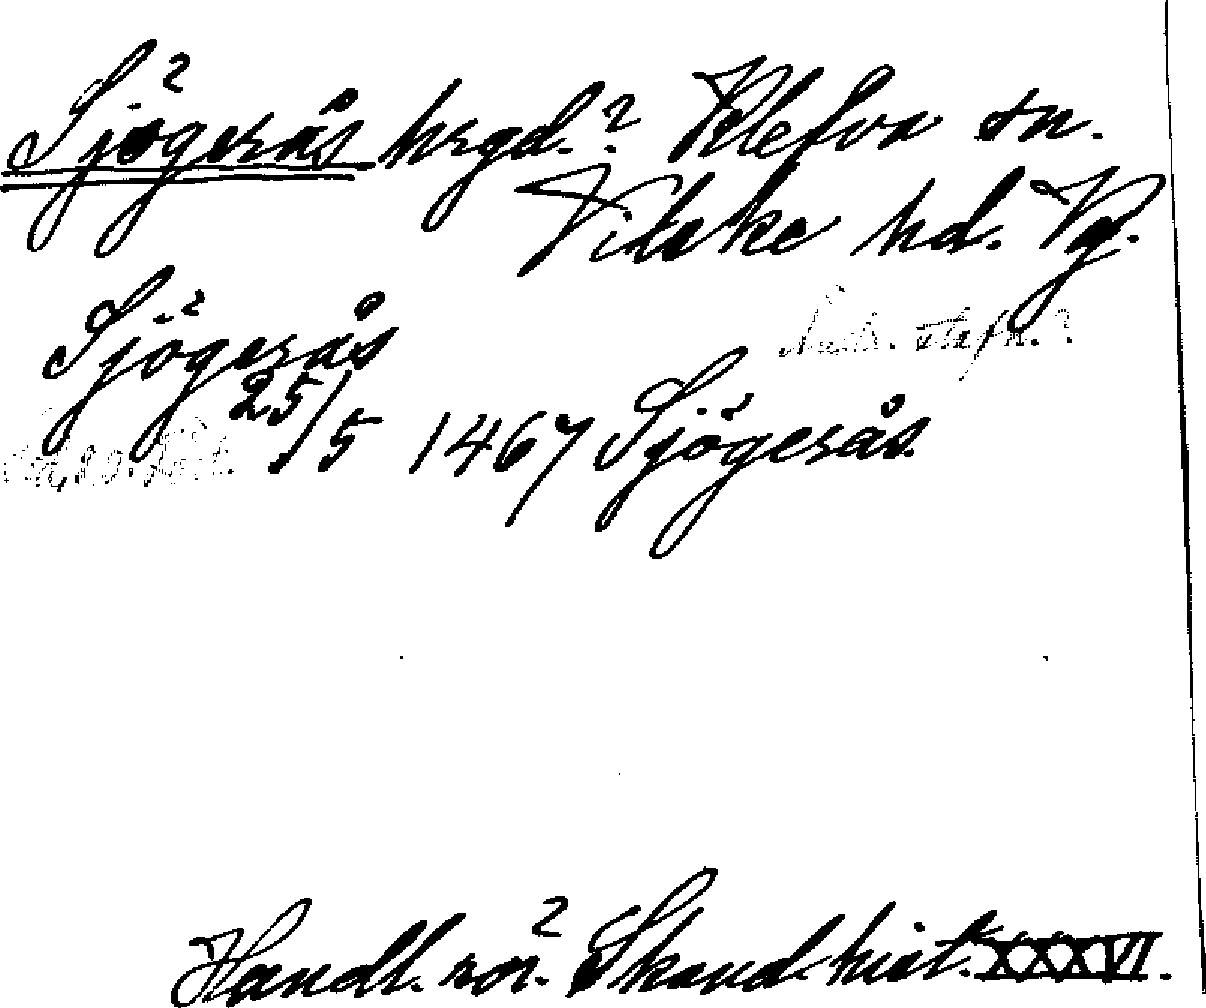 Sjögerås hrgd.? Klefva sn.
Vilske hd. Vg.
Sjögerås
25/5 1467 Sjögerås
Handl. rör. Skand. hist. XXXVI.